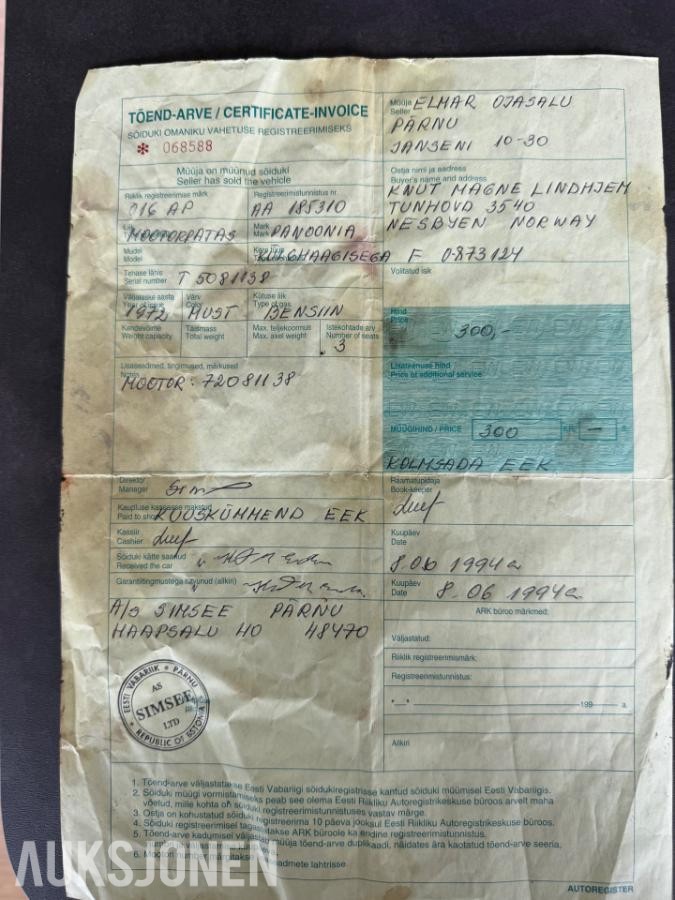 TÕEND-ARVE / CERTIFICATE-INVOICE
SÕIDUKI OMANIKU VAHETUSE REGISTREERIMISEKS
* 068588
Müüja on müünud sõiduki
Seller has sold the vehicle
Riiklik registreerimise märk
016 AP
Registreerimistunnistus nr.
AA 185310
MOOTORRATAS
Mark
Mark
PANOONIA
Mudel
Model
KÜLGHAAGISEGA
Tehase tähis
Serial number
T 5081138
Väljalaske aasta
Year of issue
1972
Värv
Color
MUST
Kütuse liik
Type of gas
BENSIIN
Kandevõime
Weight capacity
Täismass
Total weight
Max. teljekoormus
Max. axel weight
Istekohtade arv
Number of seats
3
Lisaseadmed, tingimused, märkused
Notes
MOOTOR: 72081138
Direktor
Manager
Kaupluse kassasse makstud
Paid to shop
KUUSKÜMMEND EEK
Kassiir
Cashier
Sõiduki kätte saanud
Received the car
Garantiitingmustega tutvunud (allkiri)
A/S SIMSEE PÄRNU
HAAPSALU 40 48470
EESTI VABARIIK * PÄRNU
AS
SIMSEE
LTD
* REPUBLIC OF ESTONIA
Müüja
Seller
ELMAR OJASALU
PÄRNU
JANSENI 10-30
Ostja nimi ja aadress
Buyer's name and address
KNUT MAGNE LINDHJEM
TUNHOVD 3540
NESBYEN NORWAY
F 0873124
Volitatud isik
Hind
Price
300,-
Lisateenuse hind
Price of additional service
MÜÜGIHIND / PRICE
300
KR.
—
S.
KOLMSADA EEK
Raamatupidaja
Book-keeper
Kuupäev
Date
8.06 1994 a
Kuupäev
Date
8.06 1994 a
ARK büroo märkmed:
Väljastatud:
Riiklik registreerimismärk:
Registreerimistunnistus:
199 a.
Allkiri
1. Tõend-arve väljastatakse Eesti Vabariigi sõidukiregistrisse kantud sõiduki müümisel Eesti Vabariigis.
2. Sõiduki müügi vormistamiseks peab see olema Eesti Riikliku Autoregistrikeskuse büroos arvelt maha
võetud, mille kohta on sõiduki registreerimistunnistuses vastav märge.
3. Ostja on kohustatud sõiduki registreerima 10 päeva jooksul Eesti Riikliku Autoregistrikeskuse büroos.
4. Sõiduki registreerimisel tagastatakse ARK büroole ka endine registreerimistunnistus.
5. Tõend-arve kadumisel väljastab müüja tõend-arve duplikaadi, näidates ära kaotatud tõend-arve seeria.
6. Mootori number märgitakse lisaseadmete lahtrisse.
AUTOREGISTER
AUKSJONEN